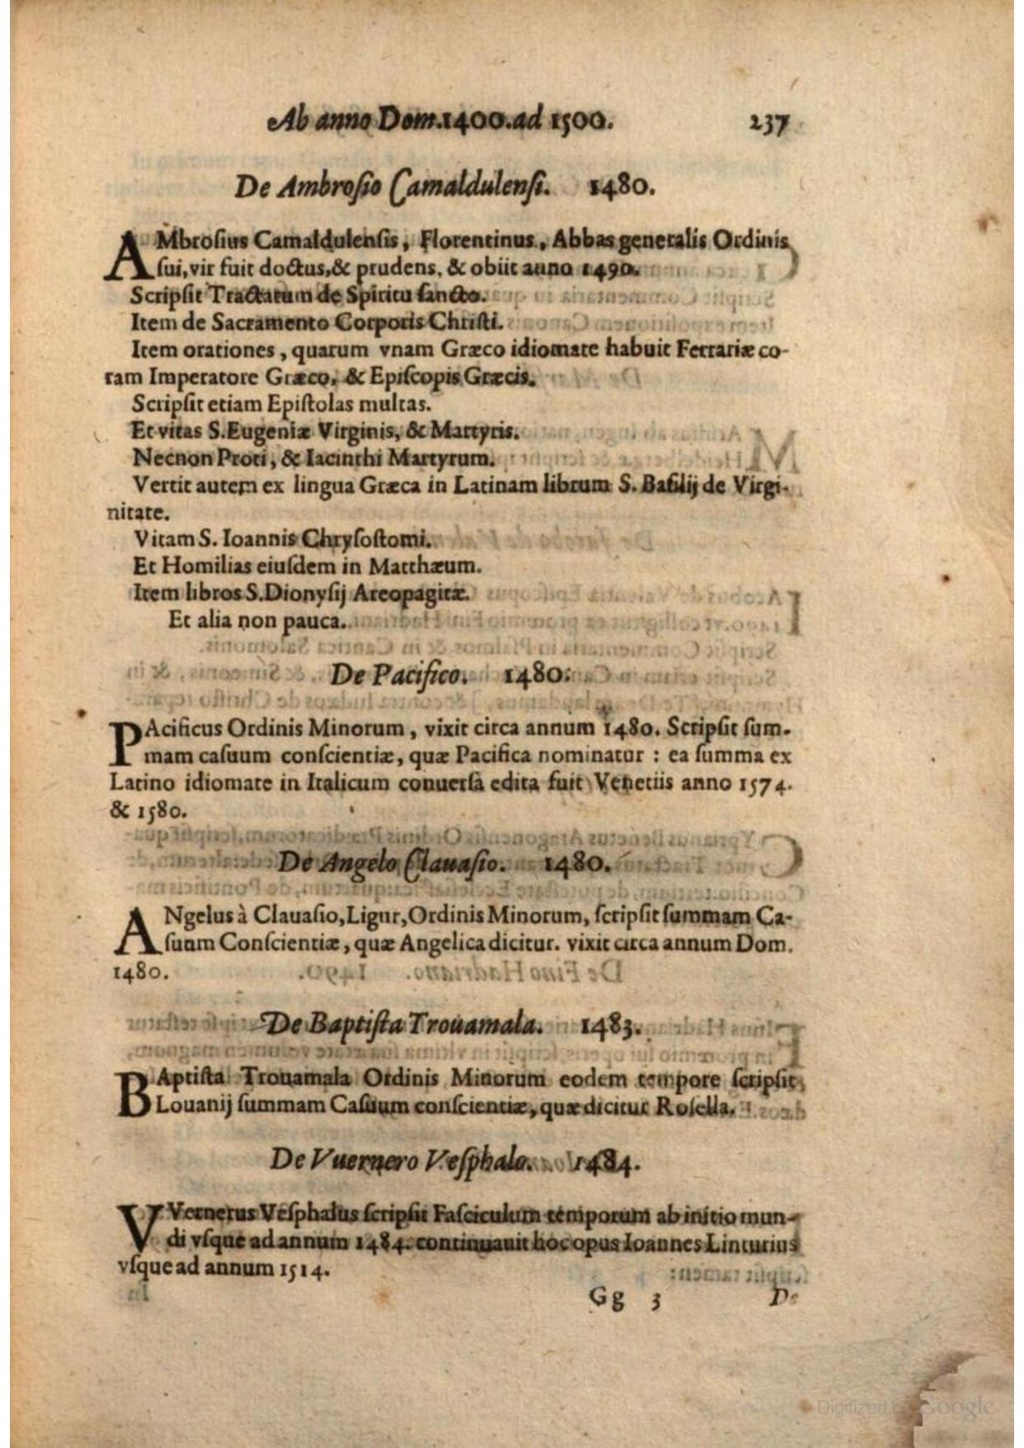 Ab anno Dom.1400.ad 1500. 237
De Ambroſio Camaldulenſi. 1480.
AMbroſius Camaldulenſis, Florentinus, Abbas generalis Ordinis
ſui, vir fuit doctus, & prudens, & obiit anno 1490.
Scripſit Tractatum de Spiritu ſancto.
Item de Sacramento Corporis Chriſti.
Item orationes, quarum vnam Græco idiomate habuit Ferrariæ co-
ram Imperatore Græco, & Epiſcopis Græcis.
Scripſit etiam Epiſtolas multas.
Et vitas S.Eugeniæ Virginis, & Martyris.
Necnon Proti, & Iacinthi Martyrum.
Vertit autem ex lingua Græca in Latinam librum S. Baſilij de Virgi-
nitate.
Vitam S. Ioannis Chryſoſtomi.
Et Homilias eiuſdem in Matthæum.
Item libros S.Dionyſij Areopagitæ.
Et alia non pauca.
De Pacifico. 1480.
PAcificus Ordinis Minorum, vixit circa annum 1480. Scripſit ſum-
mam caſuum conſcientiæ, quæ Pacifica nominatur : ea ſumma ex
Latino idiomate in Italicum conuerſa edita fuit Venetiis anno 1574.
& 1580.
De Angelo Clauaſio. 1480.
ANgelus à Clauaſio, Ligur, Ordinis Minorum, ſcripſit ſummam Ca-
ſuum Conſcientiæ, quæ Angelica dicitur. vixit circa annum Dom.
1480.
De Baptiſta Trouamala. 1483.
BAptiſta Trouamala Ordinis Minorum eodem tempore ſcripſit
Louanij ſummam Caſuum conſcientiæ, quæ dicitur Roſella.
De Vuernero Veſphalo. 1484.
VVernerus Veſphalus ſcripſit Faſciculum temporum ab initio mun-
di vſque ad annum 1484. continuauit hoc opus Ioannes Linturius
vſque ad annum 1514.
Gg 3 De
Digitized by Google